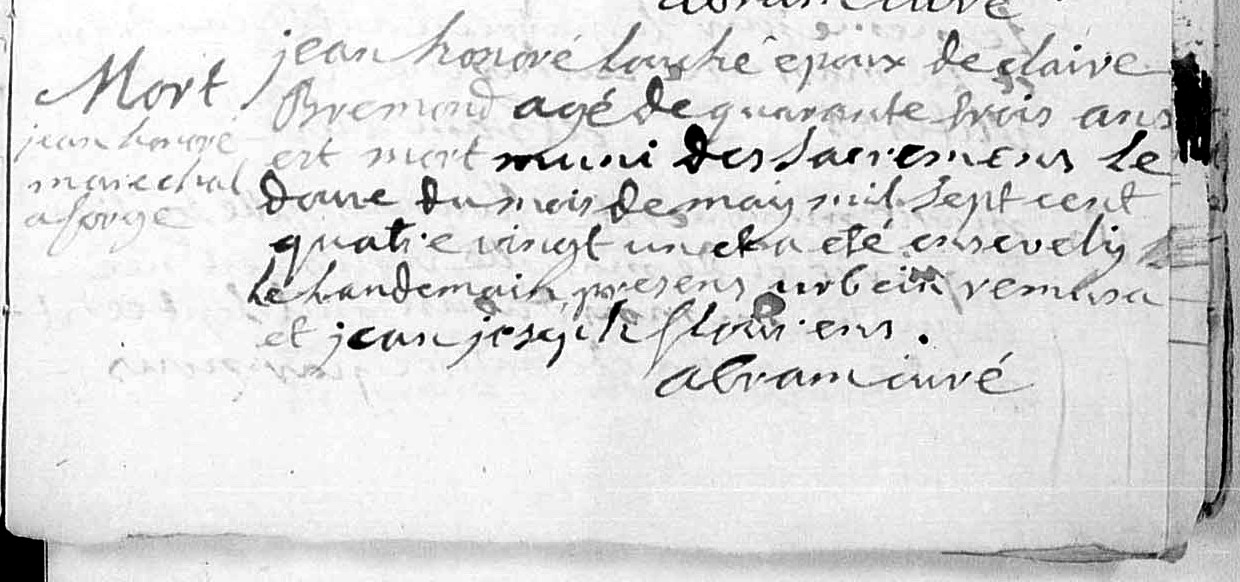 abram curé
jean honoré louche epoux de claire
Mort
Bremond agé de quarante trois ans
jean honoré
est mort muni des sacremens le
marechal
a forge
douze du mois de may mil sept cent
quatre vingt un et a eté ensevely
le landemain, presens urbein remusa
et jean joseph flouriens.
abram curé